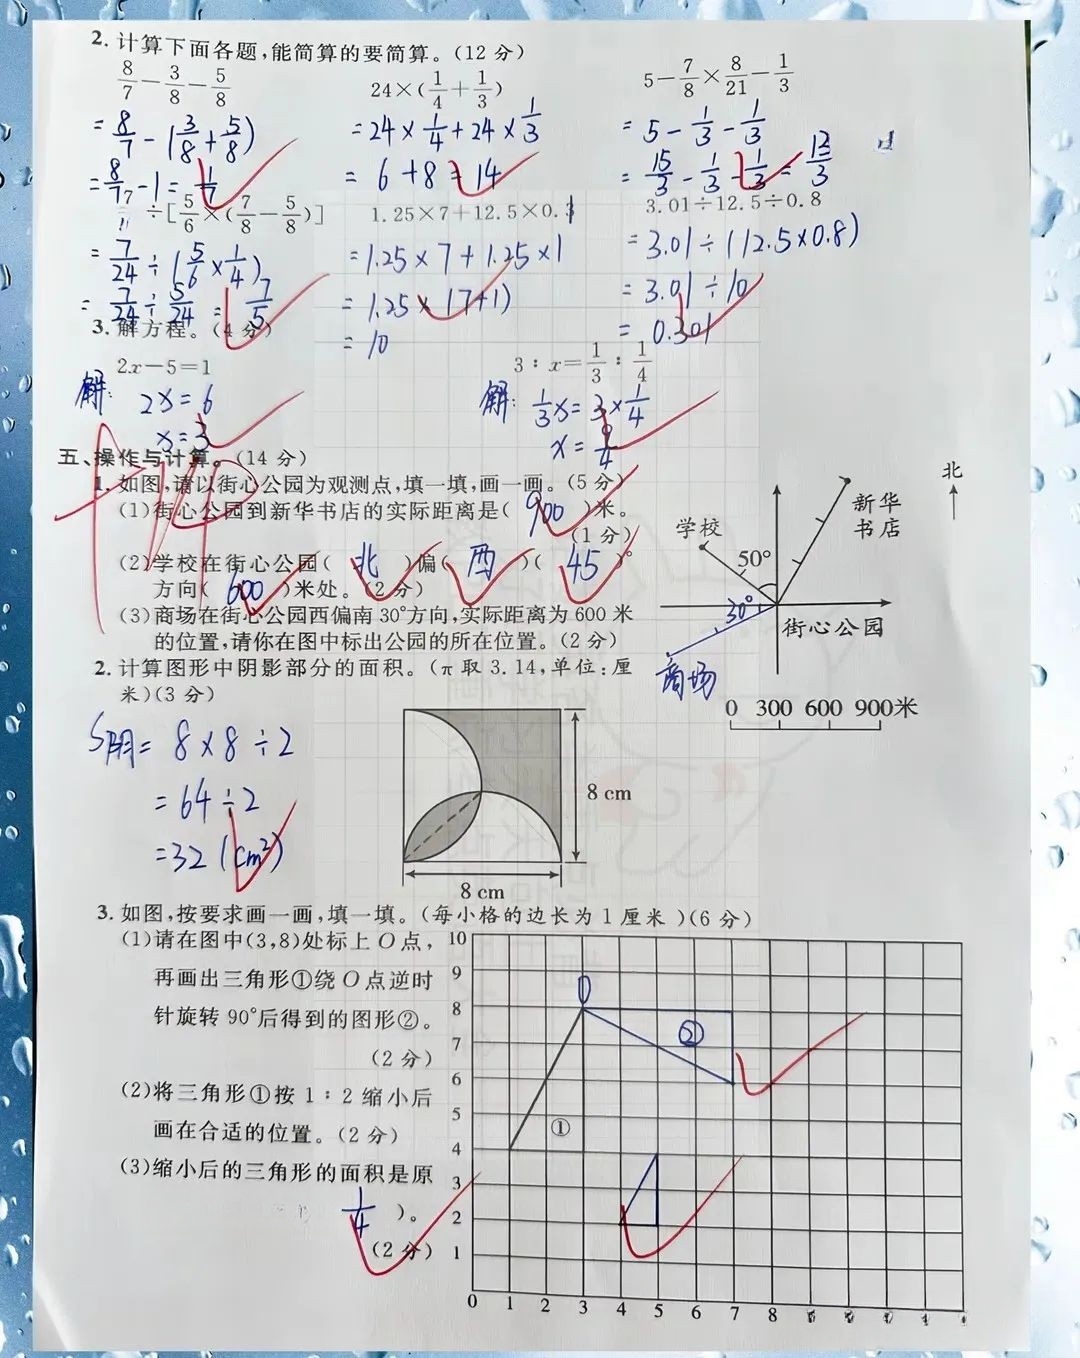 2. 计算下面各题,能简算的要简算。(12分)
8/7-3/8-5/8
24×(1/4+1/3)
5-7/8×8/21-1/3
=8/7-(3/8+5/8)
=24×1/4+24×1/3
=5-1/3-1/3
=8/7-1=1/7
=6+8=14
=15/3-1/3-1/3=13/3
÷[5/6×(7/8-5/8)]
1.25×7+12.5×0.1
3.01÷12.5÷0.8
=7/24÷(5/6×1/4)
=1.25×7+1.25×1
=3.01÷(12.5×0.8)
=7/24÷5/24=7/5
=1.25×(7+1)
=3.01÷10
=10
=0.301
3. 解方程。(4分)
2x-5=1
3:x=1/3:1/4
解: 2x=6
解: 1/3x=3×1/4
x=3
x=9/4
五、操作与计算。(14分)
1. 如图,请以街心公园为观测点,填一填,画一画。(5分)
(1)街心公园到新华书店的实际距离是( 900 )米。
(1分)
(2)学校在街心公园( 北 )偏( 西 )( 45 )°
方向( 600 )米处。(2分)
(3)商场在街心公园西偏南30°方向,实际距离为600米
的位置,请你在图中标出公园的所在位置。(2分)
北
新华
书店
学校
50°
30°
街心公园
商场
0 300 600 900米
2. 计算图形中阴影部分的面积。(π取3.14,单位:厘
米)(3分)
S阴=8×8÷2
=64÷2
=32(cm²)
8 cm
8 cm
3. 如图,按要求画一画,填一填。(每小格的边长为1厘米)(6分)
(1)请在图中(3,8)处标上O点,
再画出三角形①绕O点逆时
针旋转90°后得到的图形②。
(2分)
(2)将三角形①按1:2缩小后
画在合适的位置。(2分)
(3)缩小后的三角形的面积是原
1/4 )。
(2分)
10
9
8
7
6
5
4
3
2
1
O
②
①
0 1 2 3 4 5 6 7 8